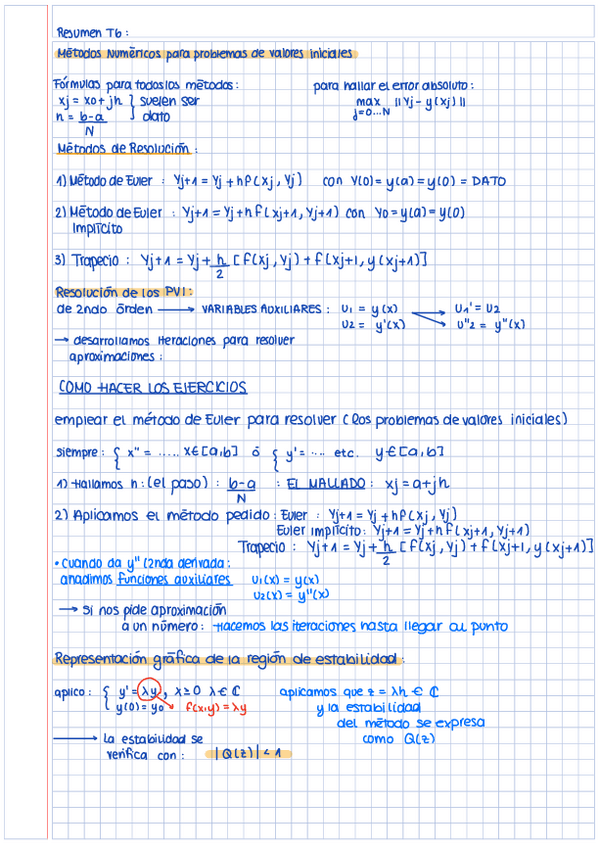 Resumen T6:
Métodos Numéricos para problemas de valores iniciales
Fórmulas para todos los métodos: para hallar el error absoluto:
xj = x0 + jh } suelen ser dato max j=0...N || Yj - y(xj) ||
h = b-a / N
Métodos de Resolución:
1) Método de Euler : Yj+1 = Yj + hf(xj, Yj) con Y(0) = y(a) = y(0) = DATO
2) Método de Euler : Yj+1 = Yj + hf(xj+1, Yj+1) con Y0 = y(a) = y(0)
Implícito
3) Trapecio : Yj+1 = Yj + h/2 [f(xj, Yj) + f(xj+1, y(xj+1)]
Resolución de los PVI:
de 2ndo órden → VARIABLES AUXILIARES : U1 = y(x) → U1' = U2
U2 = y'(x) U''2 = y''(x)
→ desarrollamos iteraciones para resolver
aproximaciones:
CÓMO HACER LOS EJERCICIOS
emplear el método de Euler para resolver (los problemas de valores iniciales)
siempre: { x'' = ..... x∈[a,b] ó { y' = .... etc. y∈[a,b]
1) Hallamos h: (el paso) : b-a / N : EL MALLADO: xj = a+jh
2) Aplicamos el método pedido: Euler : Yj+1 = Yj + hf(xj, Yj)
Euler Implícito: Yj+1 = Yj + hf(xj+1, Yj+1)
Trapecio : Yj+1 = Yj + h/2 [f(xj, Yj) + f(xj+1, y(xj+1)]
• Cuando da y'' (2nda derivada:
añadimos funciones auxiliares U1(x) = y(x)
U2(x) = y''(x)
→ Si nos pide aproximación
a un número: Hacemos las iteraciones hasta llegar al punto
Representación gráfica de la región de estabilidad:
aplico : { y' = λy, x≥0 λ∈ℂ aplicamos que z = λh ∈ ℂ
y(0) = y0 f(x,y) = λy y la estabilidad
del método se expresa
→ La estabilidad se como Q(z)
verifica con: |Q(z)| < 1